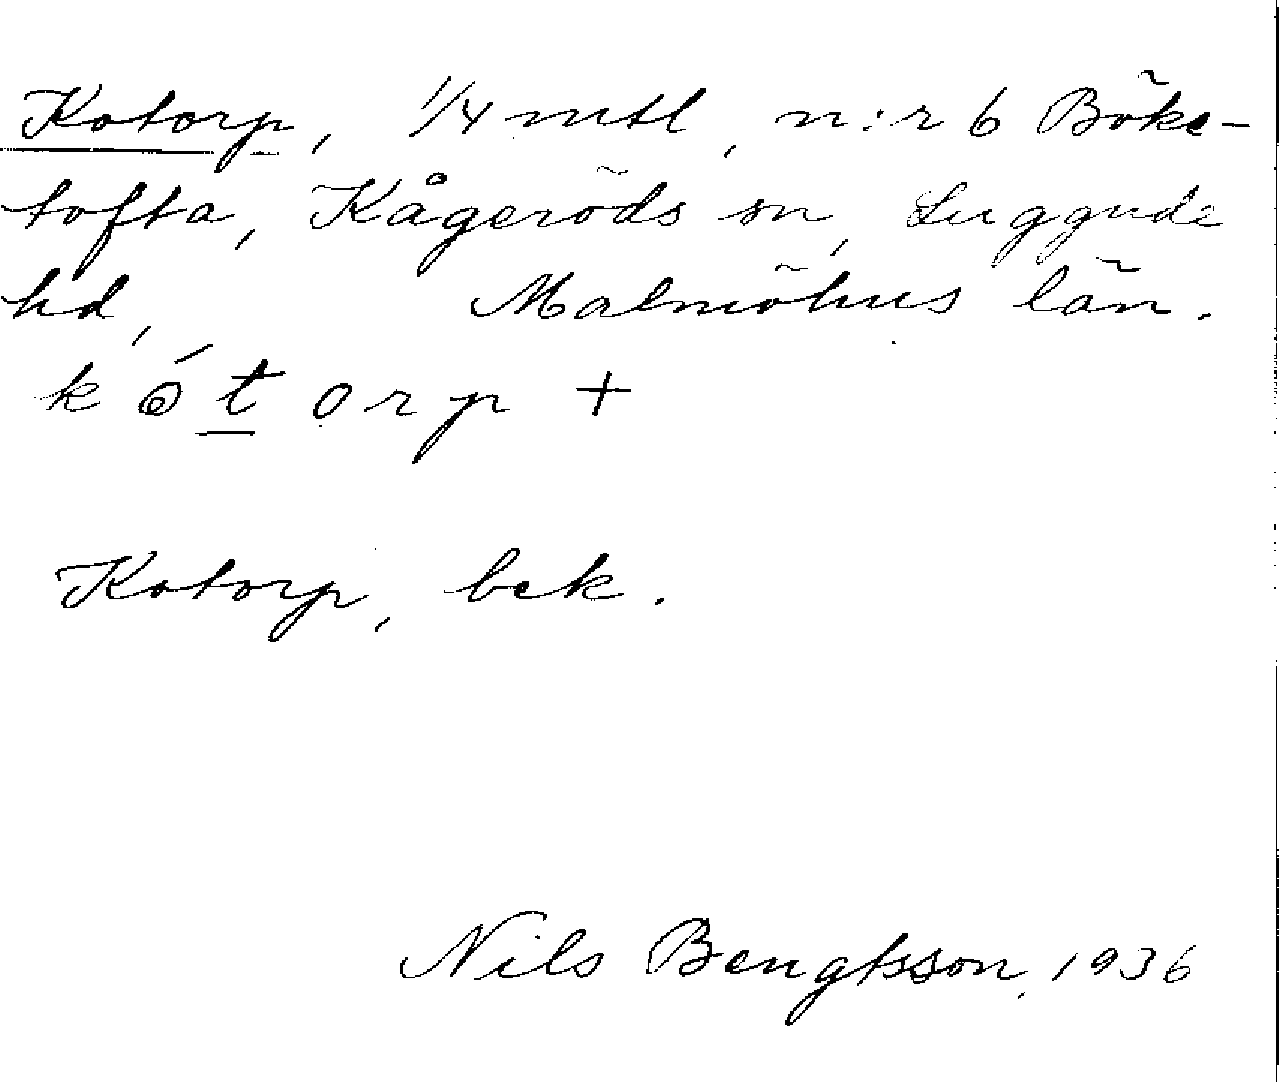 Kotorp, 1/4 mtl, n:r 6 Böke-
tofta, Kågeröds sn, Luggude
hd, Malmöhus län.
kótorp +
Kotorp, bek.
Nils Bengtsson, 1936